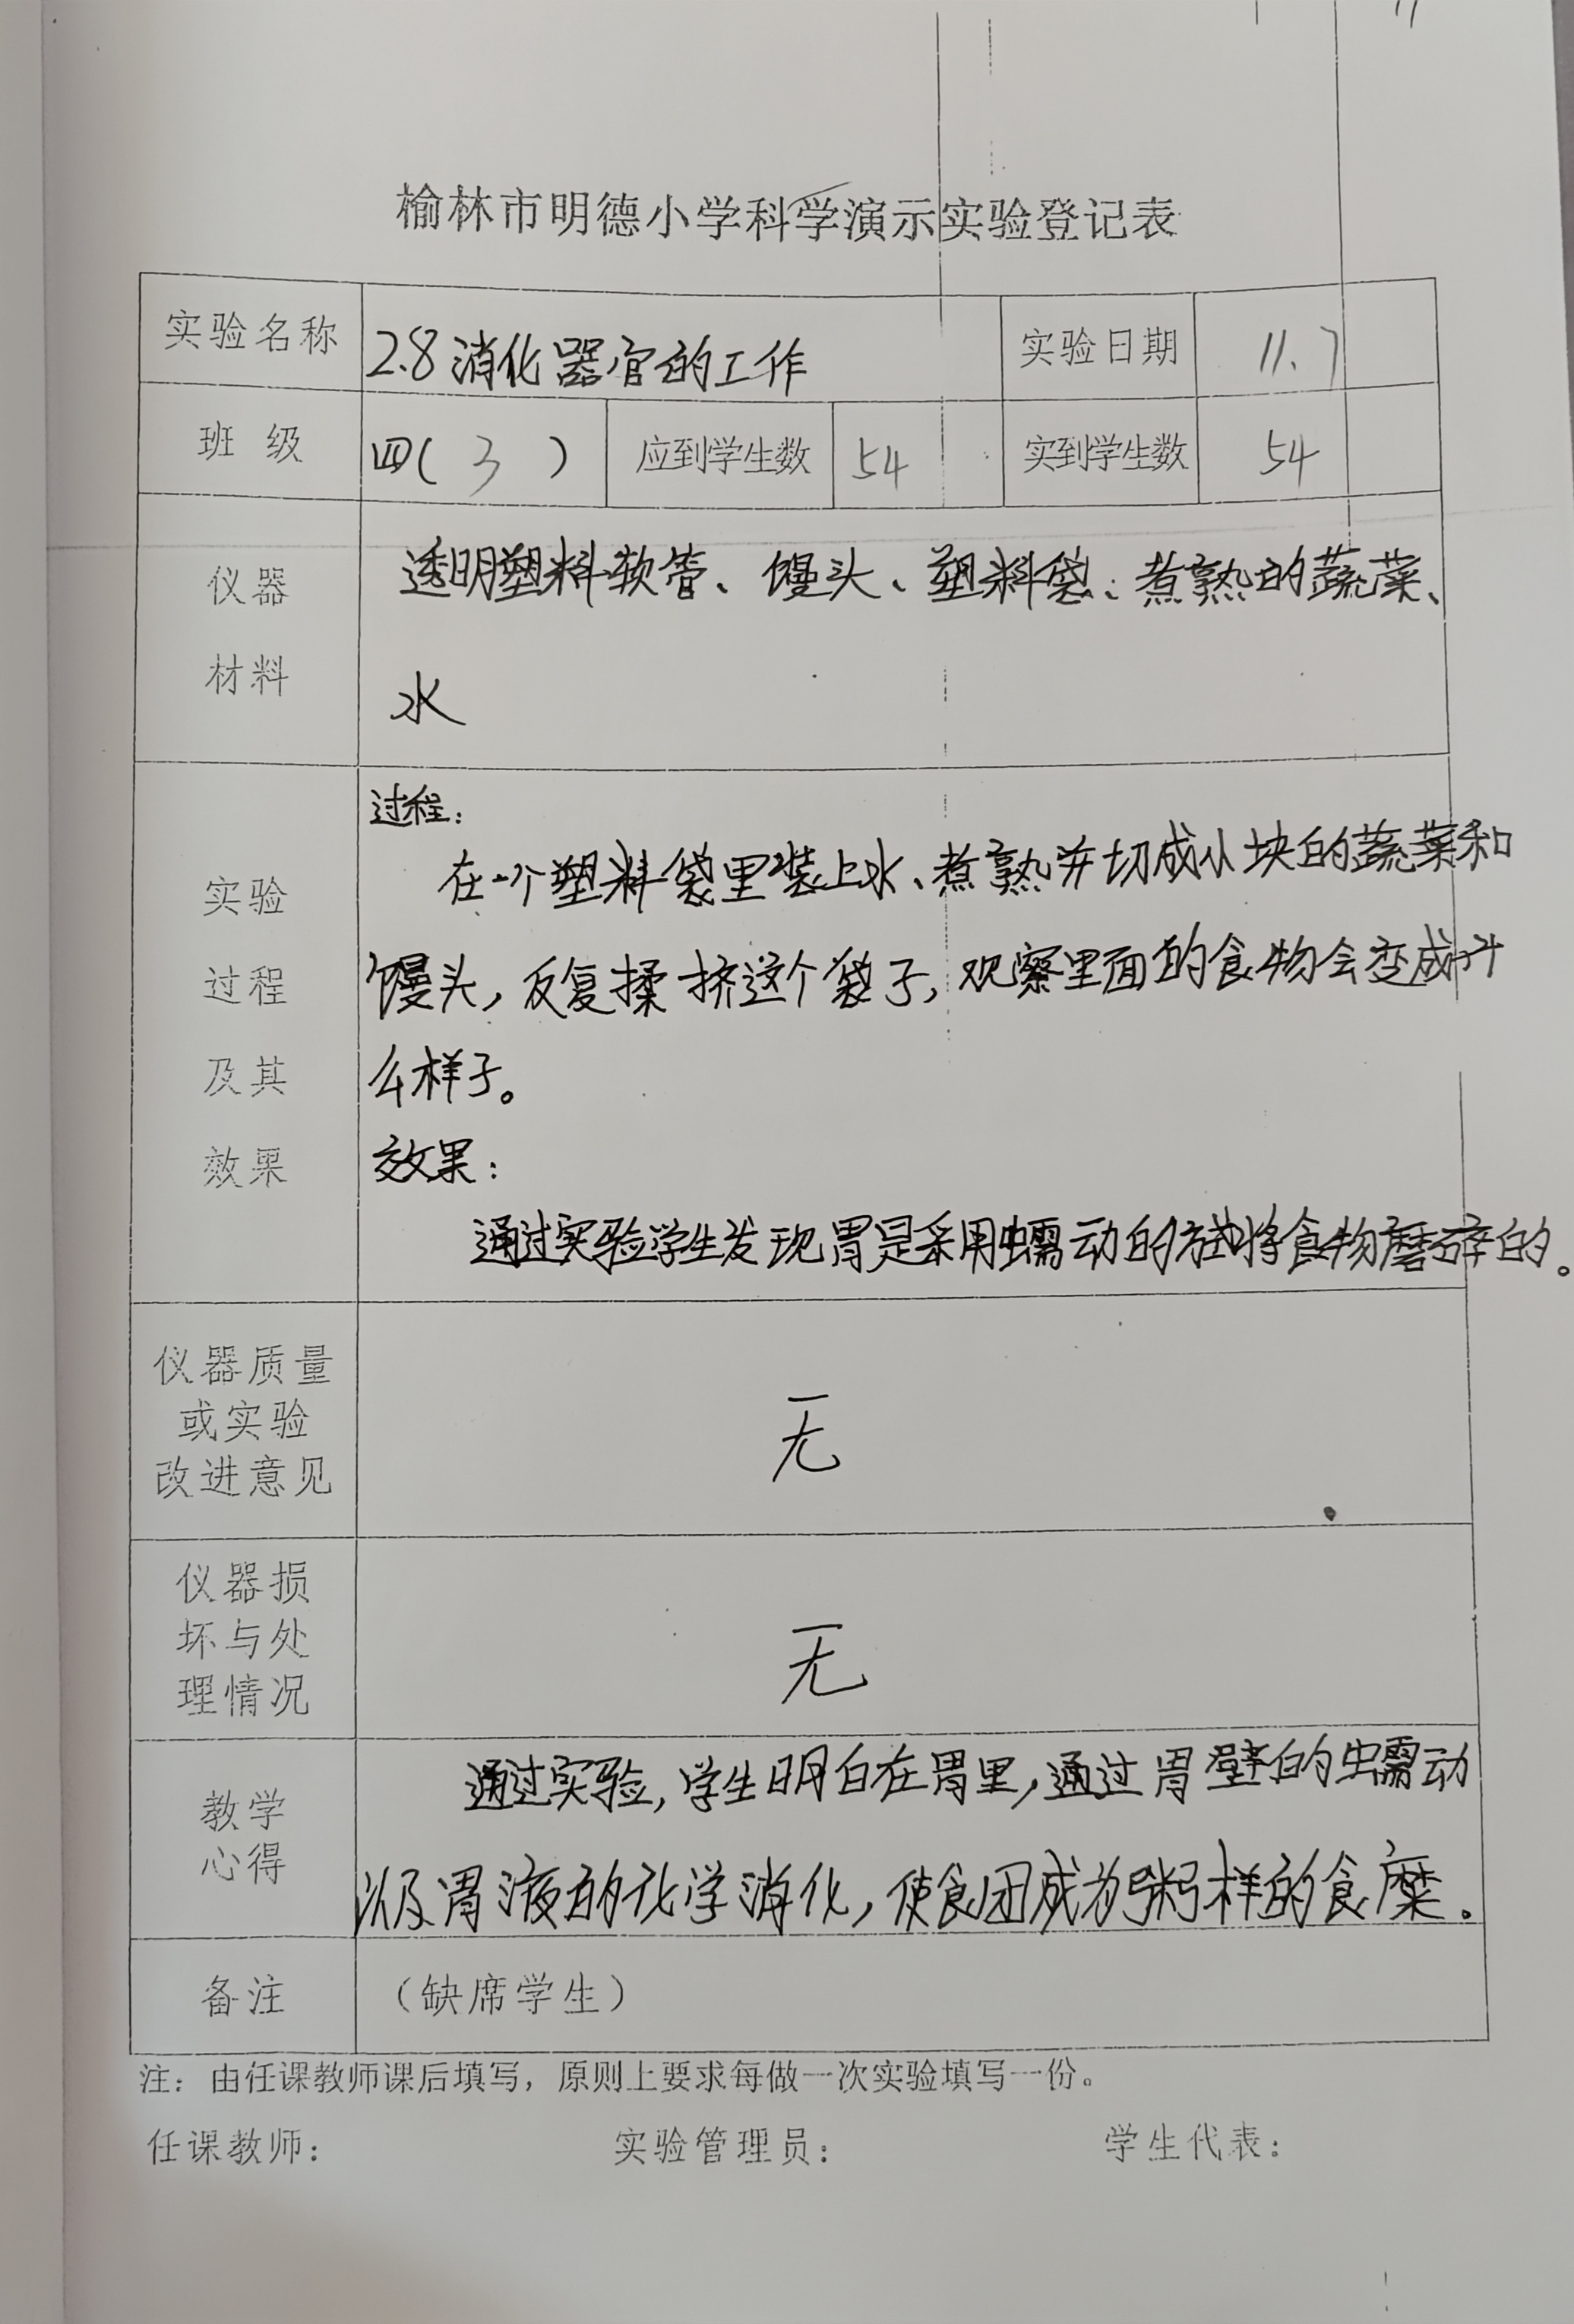 榆林市明德小学科学演示实验登记表
实验名称 2.8 消化器官的工作 实验日期 11.7
班 级 四( 3 ) 应到学生数 54 实到学生数 54
仪器 透明塑料软管、馒头、塑料袋、煮熟的蔬菜、
材料 水
过程:
在一个塑料袋里装上水、煮熟并切成小块的蔬菜和
实验
过程 馒头,反复揉挤这个袋子,观察里面的食物会变成什
及其 么样子。
效果 效果:
通过实验学生发现胃是采用蠕动的方式将食物磨碎的。
仪器质量
或实验 无
改进意见
仪器损
坏与处 无
理情况
教学 通过实验,学生明白在胃里,通过胃壁的蠕动
心得 以及胃液的化学消化,使食团成为粥样的食糜.
备注 (缺席学生)
注:由任课教师课后填写,原则上要求每做一次实验填写一份。
任课教师: 实验管理员: 学生代表: